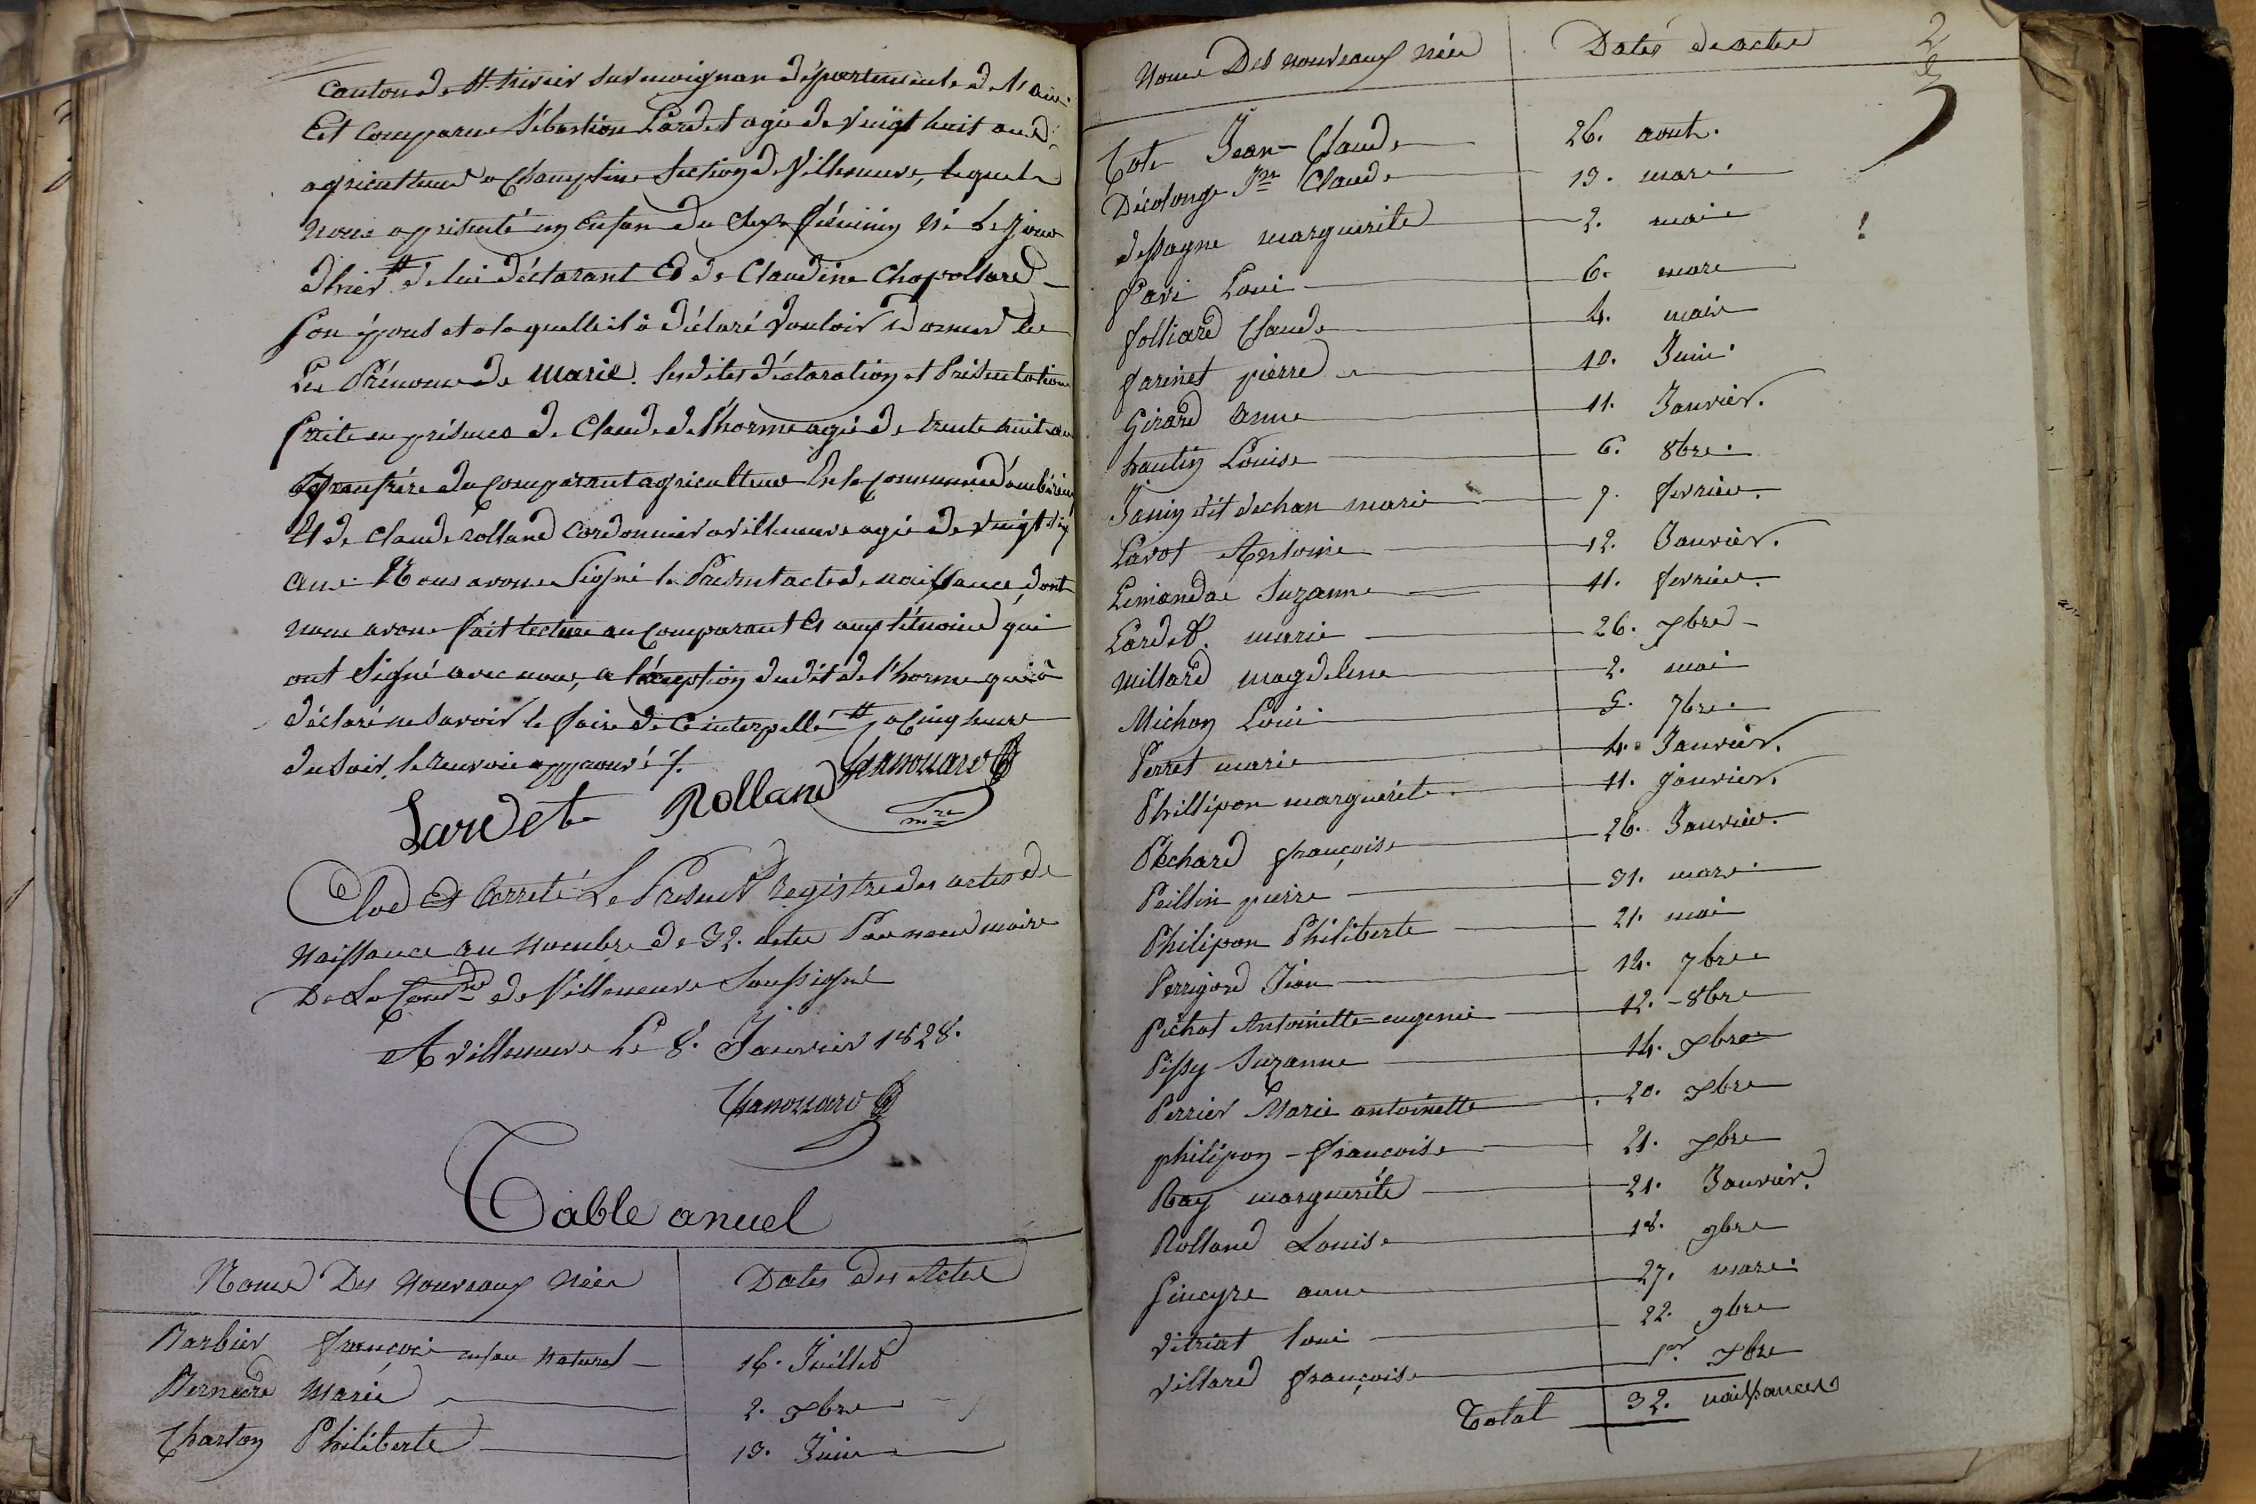 canton de St trivier sur moignan département de l'ain.
Est comparue Sébastien Lardet agé de vingt huit ans,
agriculteur a Champtin Section de Villeneuve, lequel
nous a présenté un Enfan du Sexe féminin né le jour
d'hier # de lui déclarant Et de Claudine Chapollard
son épous et a laquelle il à déclaré Vouloir donner les
Les Prénoms de marie. les dites déclaration et Présentation
faite en présence de Claude de l'horme agé de trente huit ans
Beaufrère du comparant agriculteur De la commune d'ambérieux
Et de Claude rolland Cordonnier a villeneuve agé de vingt six
ans. Nous avons Signé le Présent acte de naissance, dont
nous avons fait lecture au Comparant Et aux témoins qui
ont Signé avec nous, a l'éxeption dudit de l'horme qui à
déclaré ne Savoir le faire de ce interpellé # a Cinq heure
du soir, le renvoie approuvé /.
Lardet Rolland
mre
Clos Et Arreté Le Présent Registre des actes de
Naissance au nombre de 32. actes Par nous maire
De La Comne de Villeneuve Soussigné
A villeneuve Le 8. Janvier 1828.
Table anuel
Noms Des Nouveaux Nées Dates des Actes
Barbier françois enfan Naturel 16. Juillet
Bernard Marie 2. xbre
Charton Philiberte 13. Juin
Noms Des nouveaux nées Dates des actes
Cote Jean-Claude 26. aout.
Décolonge Jn Claude 13. mars
dessagne marguerite 2. mai
favi Loui 6. mars
folliard Claude 4. mai
farinet pierre 10. Juin.
Girard Anne 11. Janvier.
hautin Louise 6. 8bre.
Janin dit dechan marie 7. fevrier.
Lavot Antoine 12. Janvier.
Limandas Suzanne 11. fevrier.
Lardet. marie 26. xbre
Millard magdelene 2. mai
Michon Loui 5. 7bre.
Perret marie 4. Janvier.
Phillipon marguerite 11. janvier.
Péchard françoise 26. Janvier.
Peillin pierre 31. mars.
Philipon Philiberte 21. mai
Perrigord Jean 14. 7bre
Pichat Antoinette eugenie 12. 8bre
Pissy Suzanne 14. xbre
Perrier Marie antoinette 20. xbre
philipon francoise 21. xbre
Ray marguerite 21. Janvier.
Rolland Louise 18. 9bre
Sincyre anne 27. mars.
Vitriat loui 22. 9bre
Villard françoise 1er xbre
Total 32. naissances